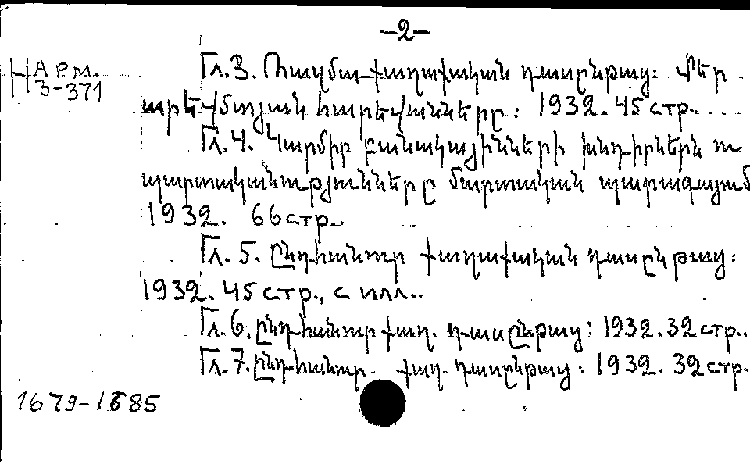 -2-
Арм.
3-371
Гл. 3. Ռազմա-քաղաքական դասընթաց: Մեր
արևմտյան հարևանները: 1932. 45 стр.
Гл. 4. Կարմիր բանակայինների խնդիրներն ու
պարտականությունները մարտական պարագայում
1932. 66 стр.
Гл. 5. Ընդհանուր քաղաքական դասընթաց:
1932. 45 стр., с илл.
Гл. 6. Ընդհանուր քաղ. դասընթաց: 1932. 32 стр.
Гл. 7. Ընդհանուր քաղ. դասընթաց: 1932. 32 стр.
1679-1685